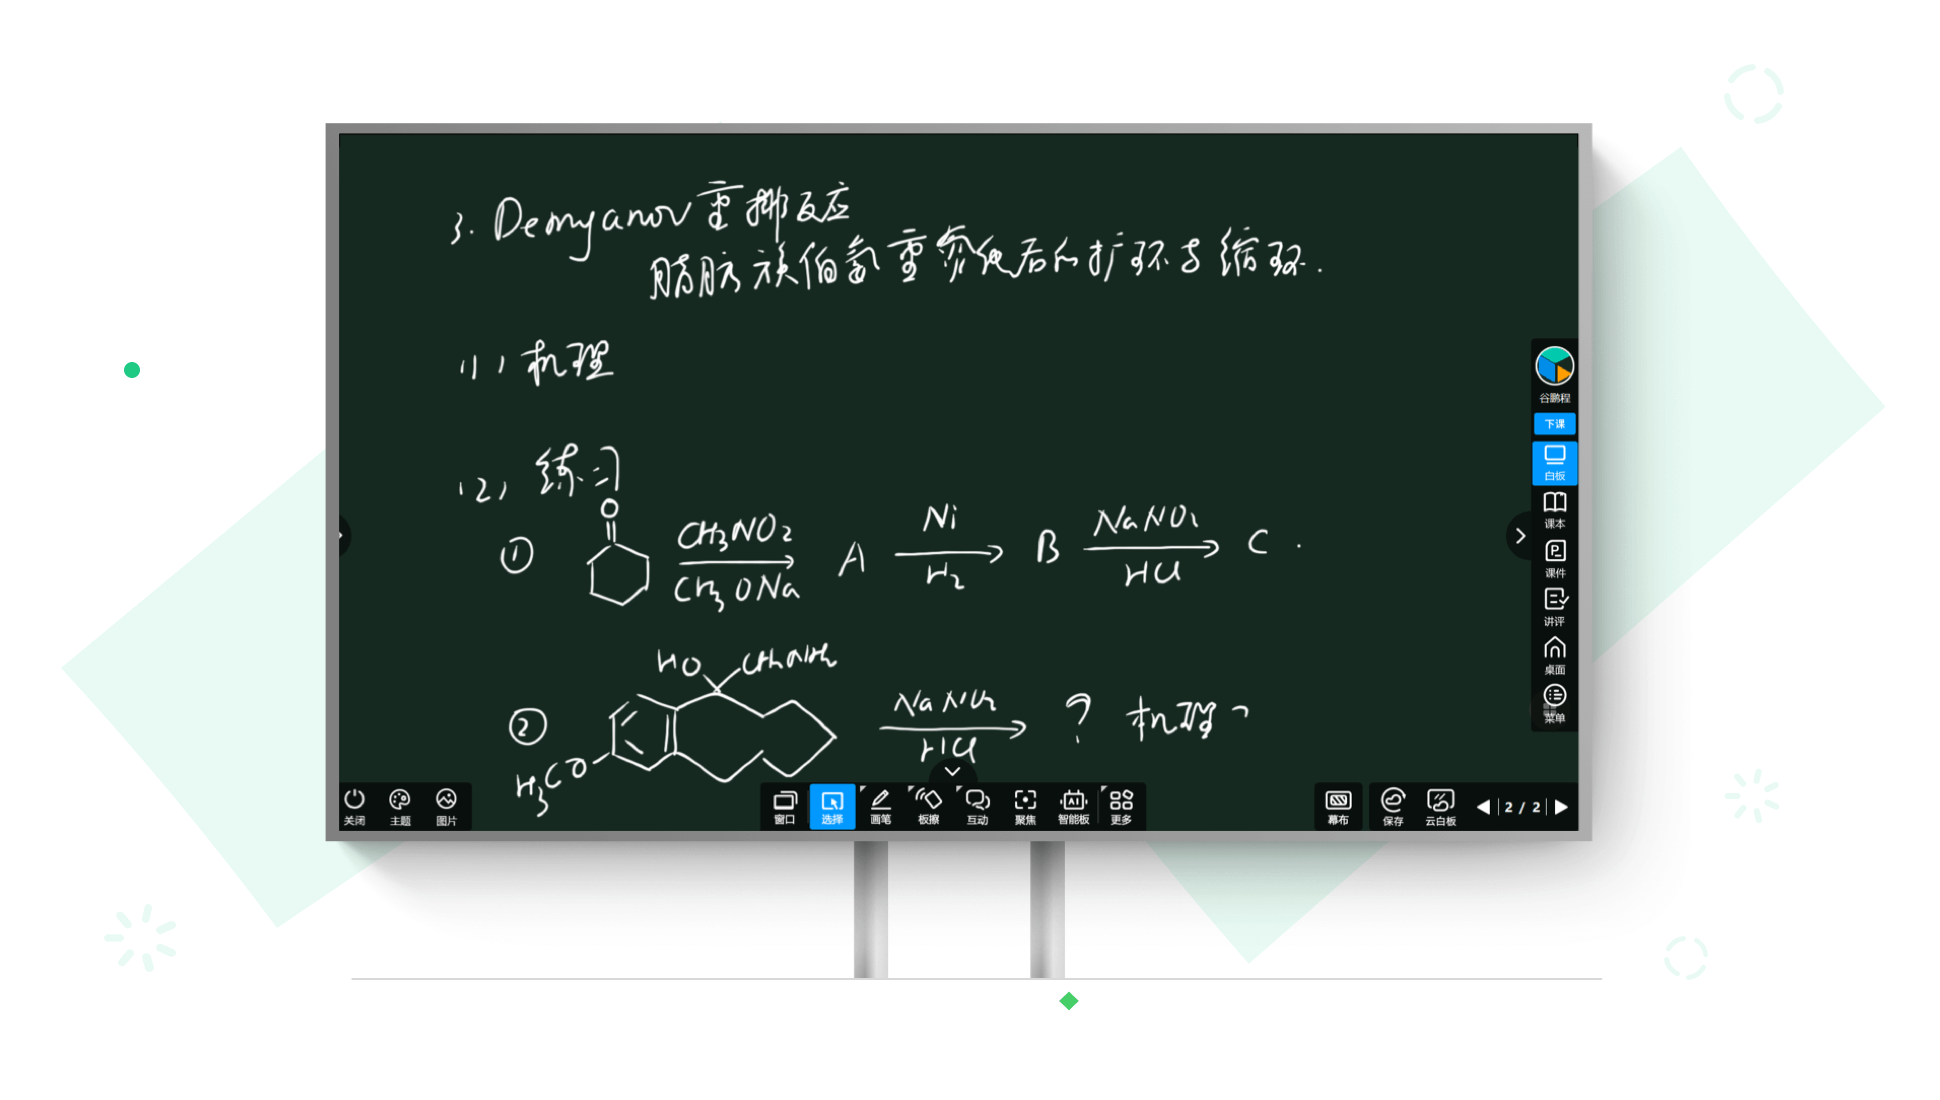 3. Demyanov重排反应
脂肪族伯氨重氮化后的扩环与缩环.
(1) 机理
(2) 练习
① O CH3NO2 CH3ONa A Ni H2 B NaNO2 HCl C .
HO CH2NH2
② H3CO NaNO2 HCl ? 机理?
谷鹏程
下课
白板
课本
课件
讲评
桌面
菜单
关闭 主题 图片 窗口 选择 画笔 板擦 互动 聚焦 智能板 更多 幕布 保存 云白板 2 / 2